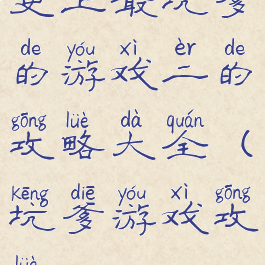 史上最坑爹
de yóu xì èr de
的游戏二的
gōng lüè dà quán
攻略大全（
kēng diē yóu xì gōng
坑爹游戏攻
lüè